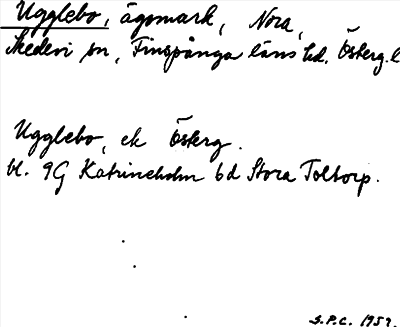 Ugglebo, ägomark, Nora,
Skedevi sn, Finspånga läns hd. Österg.l
Ugglebo, ek Österg.
bl. 9G Katrineholm 6d Stora Toltorp.
S.P.C. 1957.